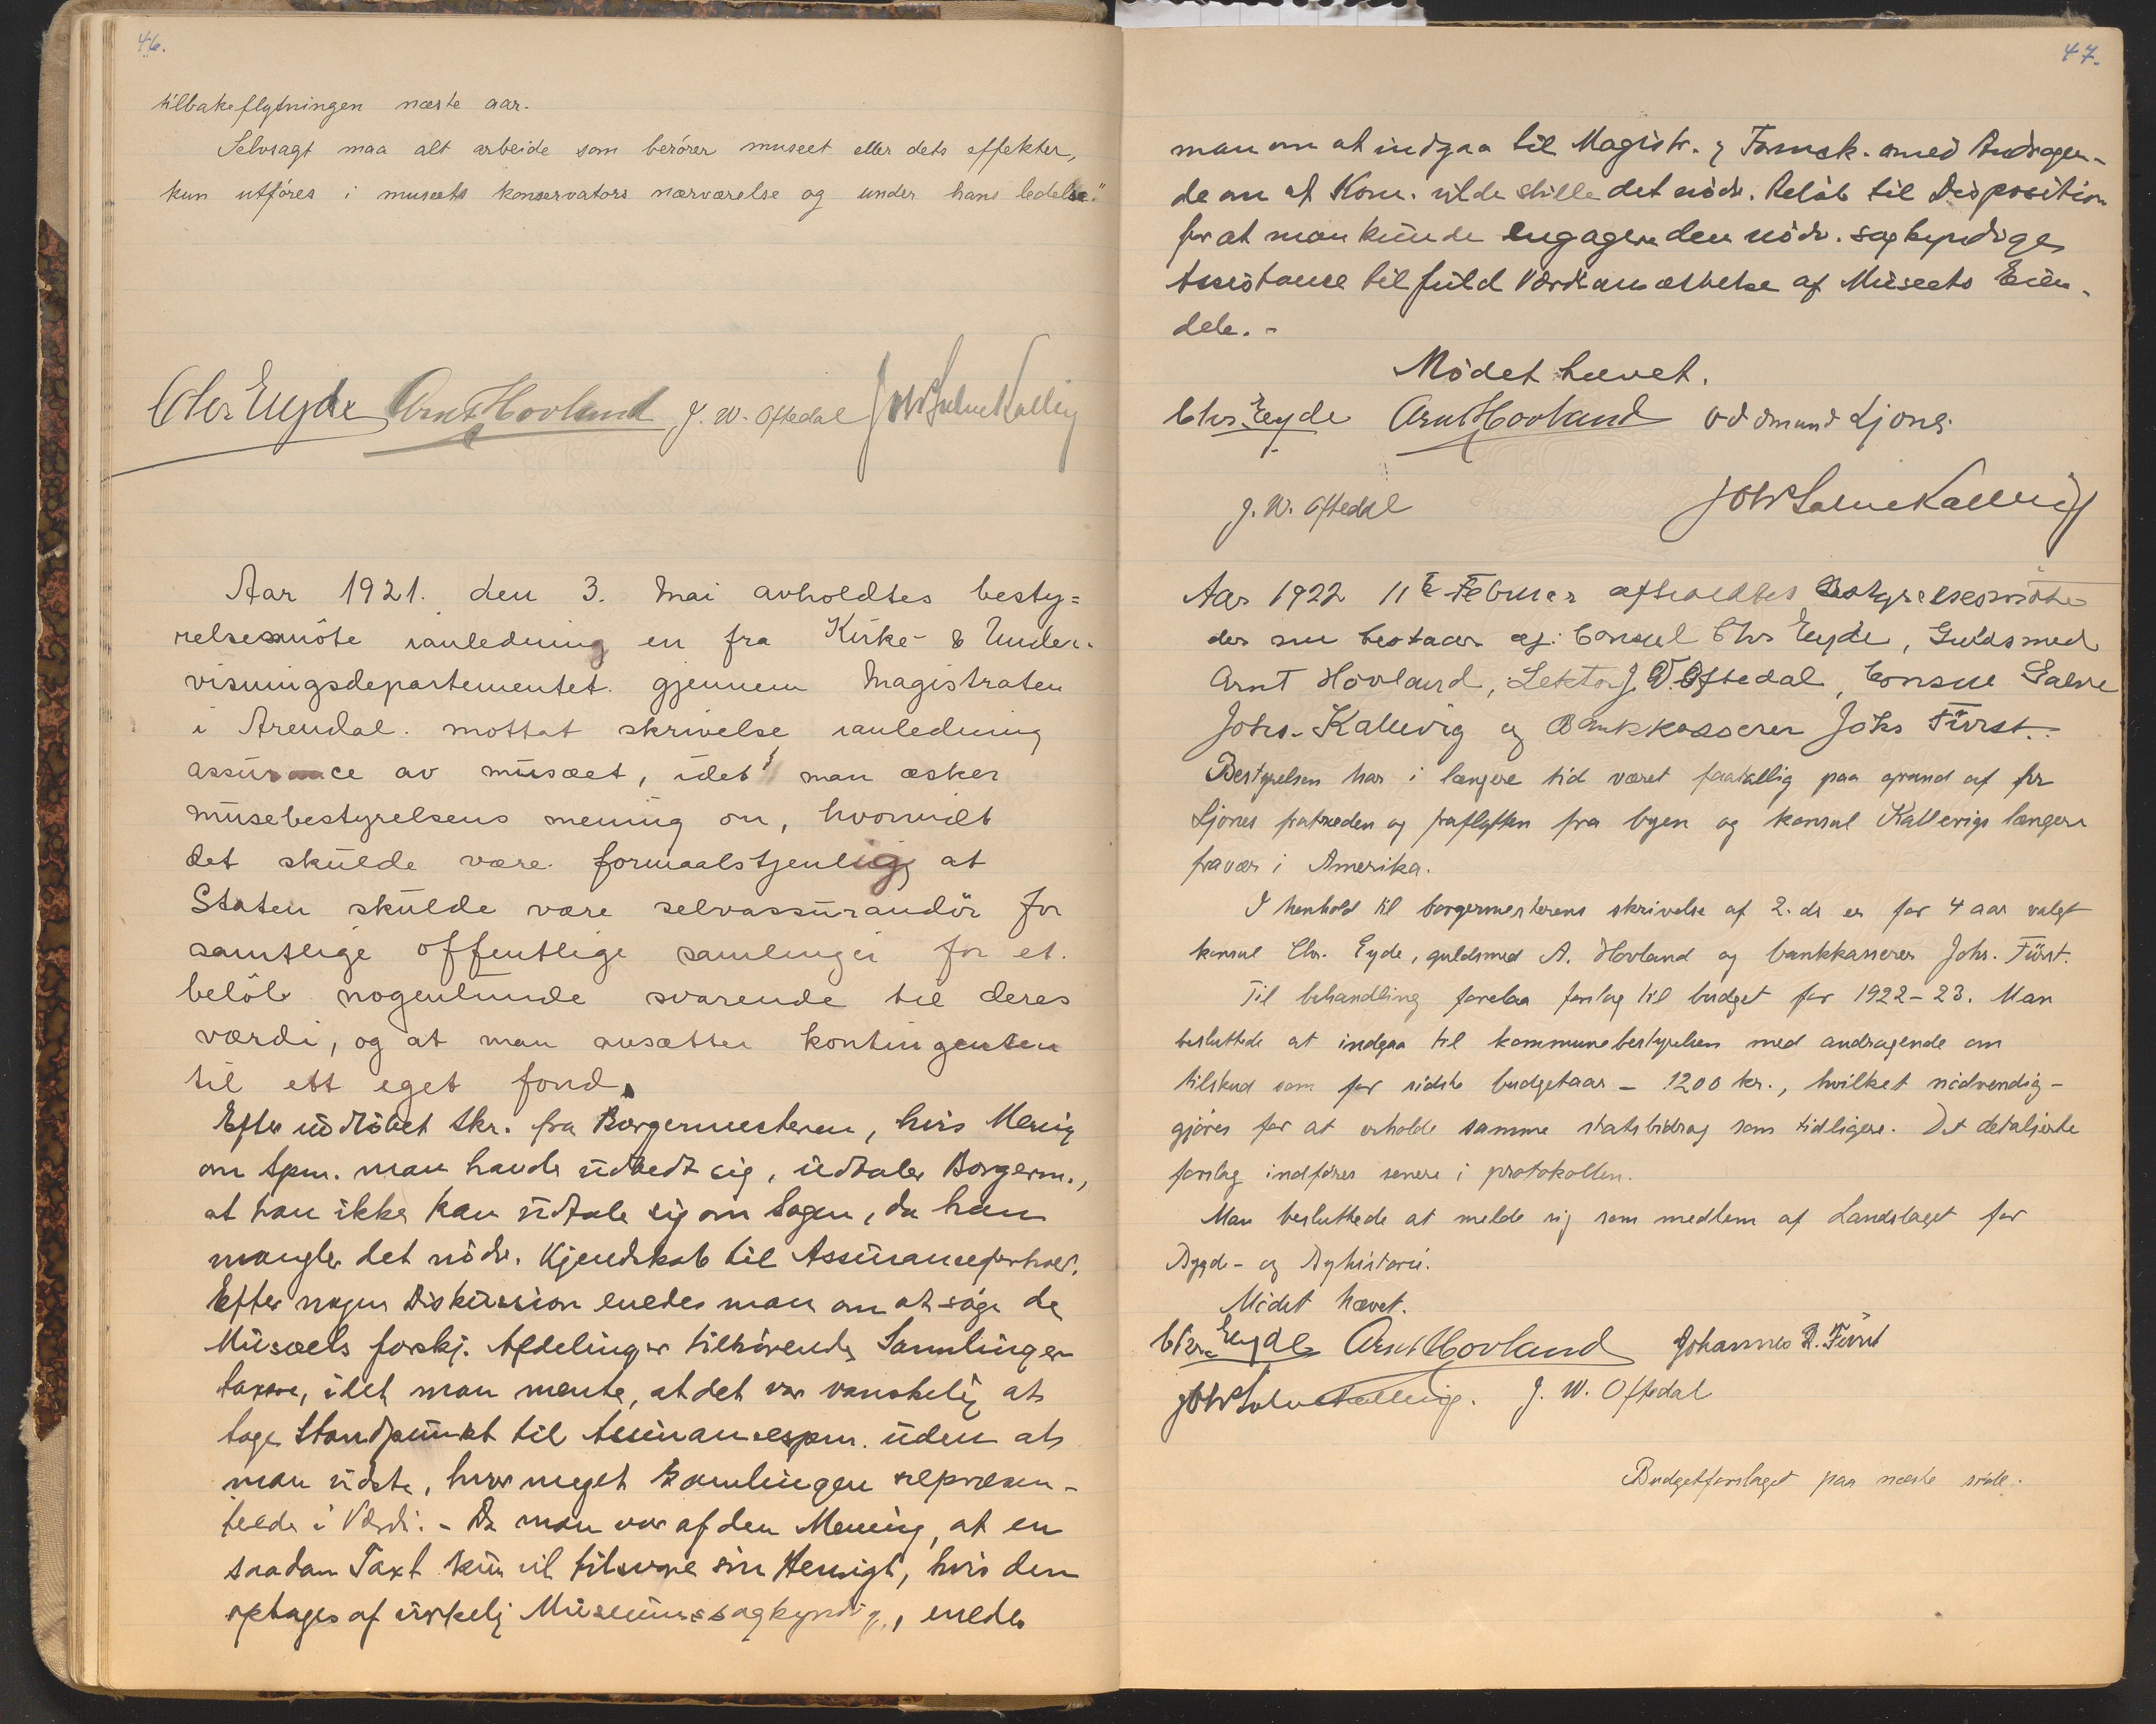 46.
tilbakeflytningen næste aar.
Selvsagt maa alt arbeide som berører museet eller dets effekter,
kun utføres i museets konservators nærværelse og under hans ledelse."
Chr Eyde Arnt Hovland J. W. Oftedal Johs Salve Kallevig
Aar 1921. den 3. mai avholdtes besty=
relsesmöte ianledning en fra Kirke- & Under-
visningsdepartementet. gjennem Magistraten
i Arendal. mottat skrivelse ianledning
assurance av musæet, idet man æsker
musebestyrelsens mening om, hvorvidt
det skulde være formaalstjenlig at
Staten skulde være selvassurandör for
samtlige offentlige samlinger for et.
belöb nogenlunde svarende til deres
værdi, og at man ansætter kontingenten
til ett eget fond.
Efter indløbet Skr. fra Borgermesteren, hvis Mening
om Spm. man havde udbedt sig, udtaler Borgerm.,
at han ikke kan udtale sig om Sagen, da han
mangler det nödv. Kjendskab til Assuranceforhold.
Efter nogen Diskussion enedes man om at söge de
Musæets forskj. Afdelinger tilhörende Samlinger
taxere, idet man mente, at det var vanskelig at
tage Standpunkt til Assurancespm. uden at
man vidste, hvor meget Samlingen repræsen-
terede i Værdi. - Da man var af den Mening, at en
saadan Taxt kun vil tilsvare sin Hensigt, hvis den
optages af virkelig Museumssagkyndige, enedes
47.
man om at indgaa til Magistr. og Formsk. med Andragen-
de om at Kom. vilde stille det nödv. Beløb til Disposition
for at man kunde engagere den nödv. sagkyndige
Assistance til fuld Værdiansættelse af Museets Eien-
dele. -
Mödet hævet.
Chr Eyde Arnt Hovland Oddmund Ljone.
J. W. Oftedal Johs Salve Kallevig
Aar 1922 11te Februar afholdtes Bestyrelsesmöte
der nu bestaar af: Consul Chr Eyde, Guldsmed
Arnt Hovland, Lektor J. W. Oftedal, Consul Salve
Johs. Kallevig og Bankkasserer Johs Fürst.
Bestyrelsen har i længere tid været faatallig paa grund af hr
Ljones fratræden og fraflytten fra byen og konsul Kallevigs længere
fravær i Amerika.
I henhold til borgermesterens skrivelse af 2. ds er for 4 aar valgt
konsul Chr. Eyde, guldsmed A. Hovland og bankkasserer Johs. Fürst.
Til behandling forelaa forslag til budget for 1922-23. Man
besluttede at indgaa til kommunebestyrelsen med andragende om
tilskud som for sidste budgetaar - 1200 kr., hvilket nödvendig-
gjøres for at erholde samme statsbidrag som tidligere. Det detaljerte
forslag indføres senere i protokollen.
Man besluttede at melde sig som medlem af Landslaget for
Bygde- og Byhistorie.
Mødet hævet.
Chr Eyde Arnt Hovland Johannes R. Fürst
Johs Salve Kallevig. J. W. Oftedal
Budgetforslaget paa næste side.